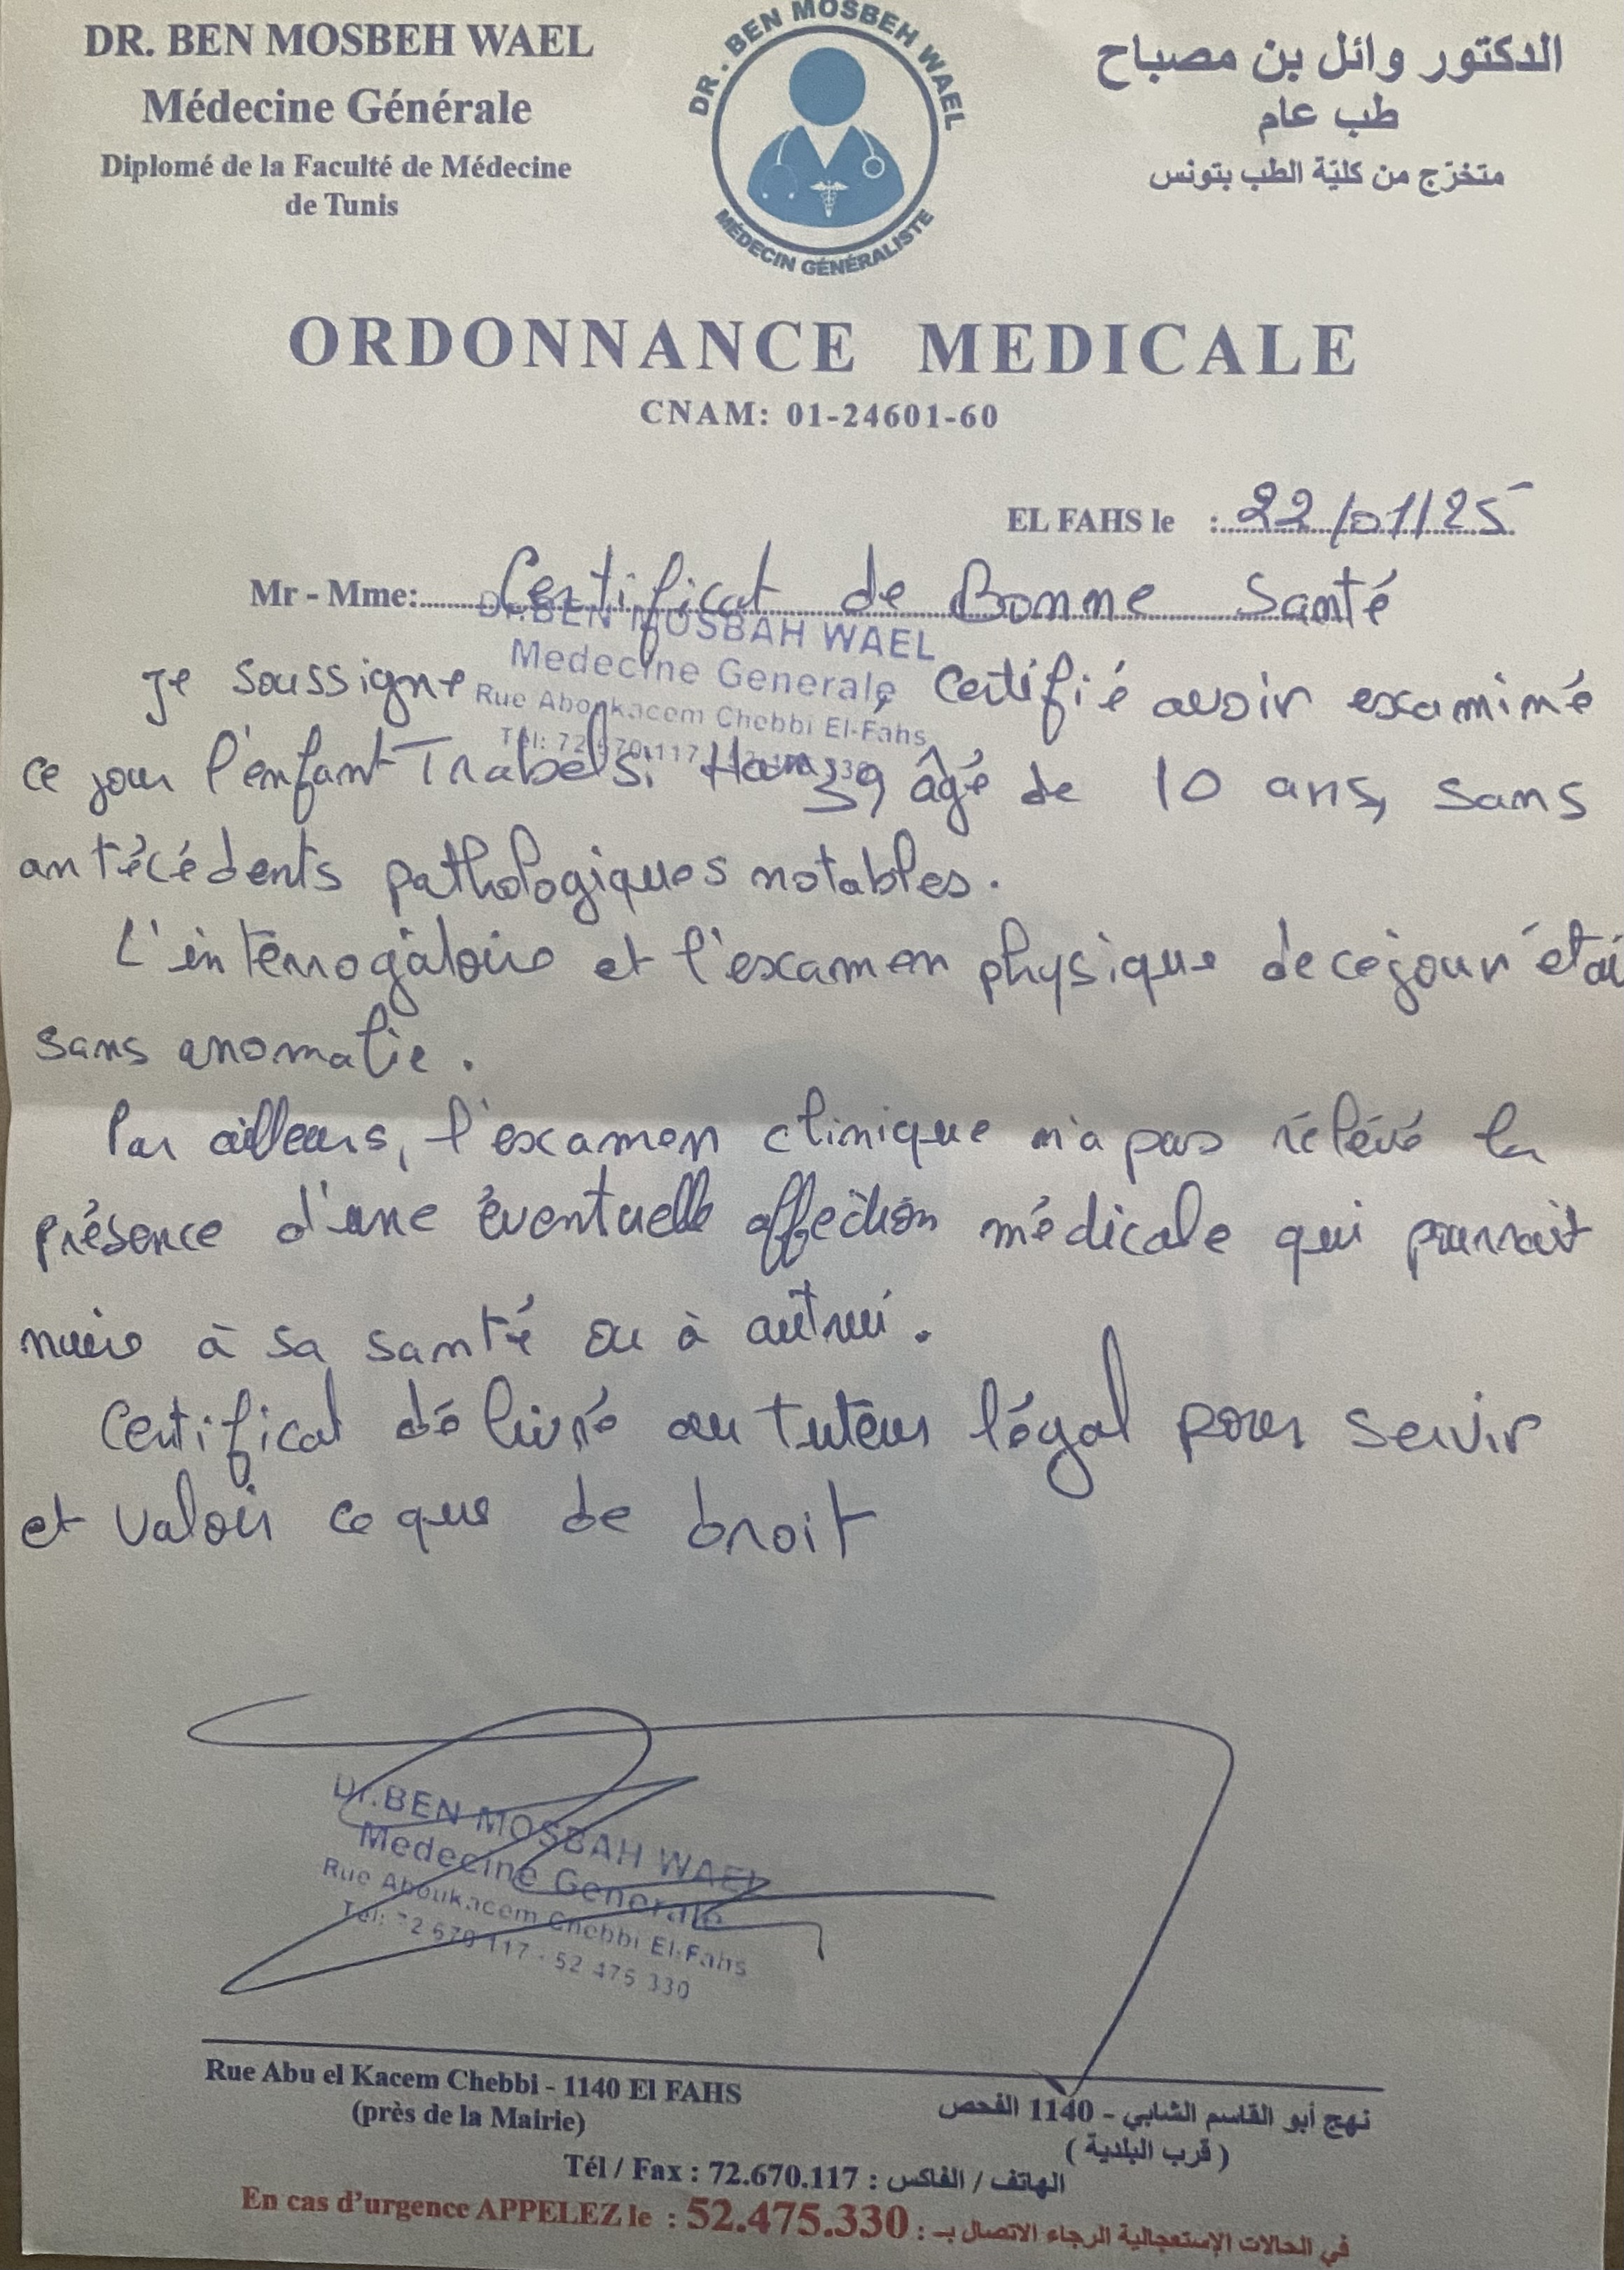 DR. BEN MOSBEH WAEL
Médecine Générale
Diplomé de la Faculté de Médecine
de Tunis
DR. BEN MOSBEH WAEL
MÉDECIN GÉNÉRALISTE
الدكتور وائل بن مصباح
طب عام
متخرّج من كليّة الطب بتونس
ORDONNANCE MEDICALE
CNAM: 01-24601-60
EL FAHS le : 22/01/25
Mr - Mme: Certificat de Bonne Santé
Dr.BEN MOSBAH WAEL
Medecine Generale
Rue Aboukacem Chebbi El-Fahs
Tél: 72 670 117
Je soussigne, certifié avoir examiné
ce jour l'enfant Trabelsi âgé de 10 ans, sans
antécédents pathologiques notables.
L'interrogatoire et l'examen physique de ce jour étai
sans anomalie.
Par ailleurs, l'examen clinique n'a pas rélévé la
présence d'une éventuelle affection médicale qui pourrait
nuire à sa santé ou à autrui.
Certificat délivré au tuteur légal pour servir
et valoir ce que de droit
Dr.BEN MOSBAH WAEL
Medecine Generale
Rue Aboukacem Chebbi El-Fahs
Tél: 72 670 117 - 52 475 330
Rue Abu el Kacem Chebbi - 1140 El FAHS
(près de la Mairie)
نهج أبو القاسم الشابي - 1140 الفحص
( قرب البلدية )
Tél / Fax : 72.670.117 : الهاتف / الفاكس
En cas d'urgence APPELEZ le : 52.475.330 : في الحالات الإستعجالية الرجاء الاتصال بـ